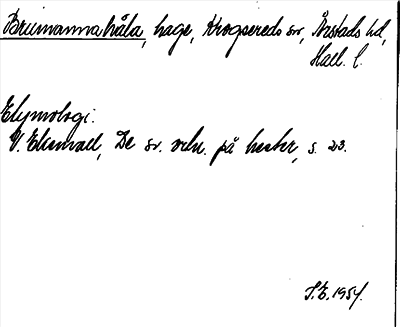 Brumannahåla, hage, Krogsereds sn, Årstads hd,
Hall. l.
Etymologi:
V. Ekenvall, De sv. ortn. på hester, s. 23.
S.E. 1954.